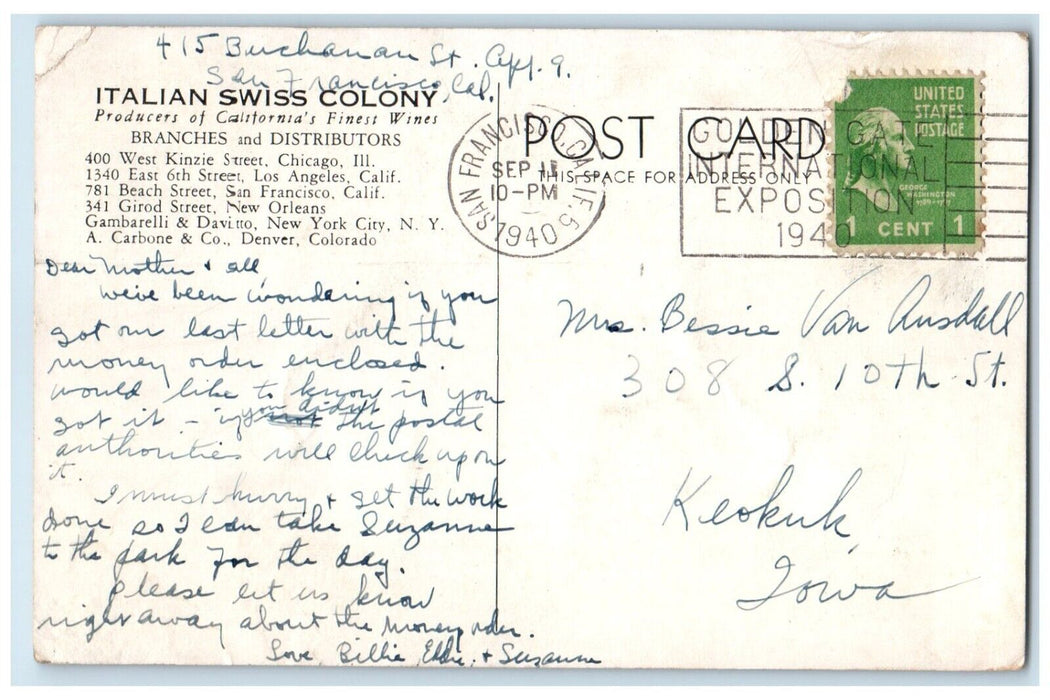 415 Buchanan St. Apt. 9.
San Francisco, Cal.
ITALIAN SWISS COLONY
Producers of California's Finest Wines
BRANCHES and DISTRIBUTORS
400 West Kinzie Street, Chicago, Ill.
1340 East 6th Street, Los Angeles, Calif.
781 Beach Street, San Francisco, Calif.
341 Girod Street, New Orleans
Gambarelli & Davitto, New York City, N. Y.
A. Carbone & Co., Denver, Colorado
Dear Mother & all
We've been wondering if you
got our last letter with the
money order enclosed.
would like to know if you
got it - if you didn't the postal
authorities will check up on
it.
I must hurry & get the work
done so I can take Suzanne
to the park for the day.
Please let us know
right away about the money order.
Love, Billie, Eddie, & Suzanne
POST CARD
THIS SPACE FOR ADDRESS ONLY
SAN FRANCISCO, CALIF. 5
SEP 11
10-PM
1940
GOLDEN GATE
INTERNATIONAL
EXPOSITION
1940
UNITED
STATES
POSTAGE
GEORGE
WASHINGTON
1789-1797
1 CENT 1
Mrs. Bessie Van Ausdall
308 S. 10th St.
Keokuk,
Iowa